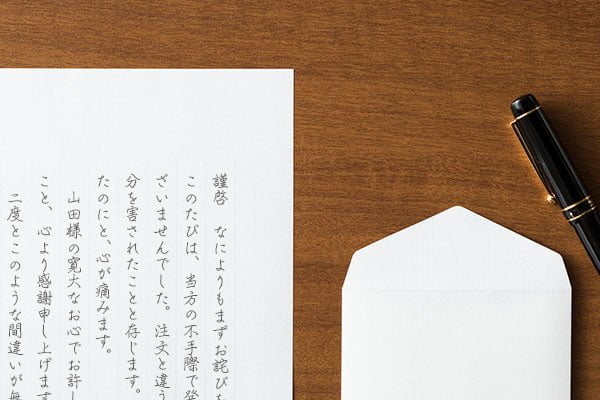 謹啓　なによりもまずお詫びを
このたびは、当方の不手際で発
ざいませんでした。注文と違う
分を害されたことと存じます。
たのにと、心が痛みます。
山田様の寛大なお心でお許し
こと、心より感謝申し上げます
二度とこのような間違いが無